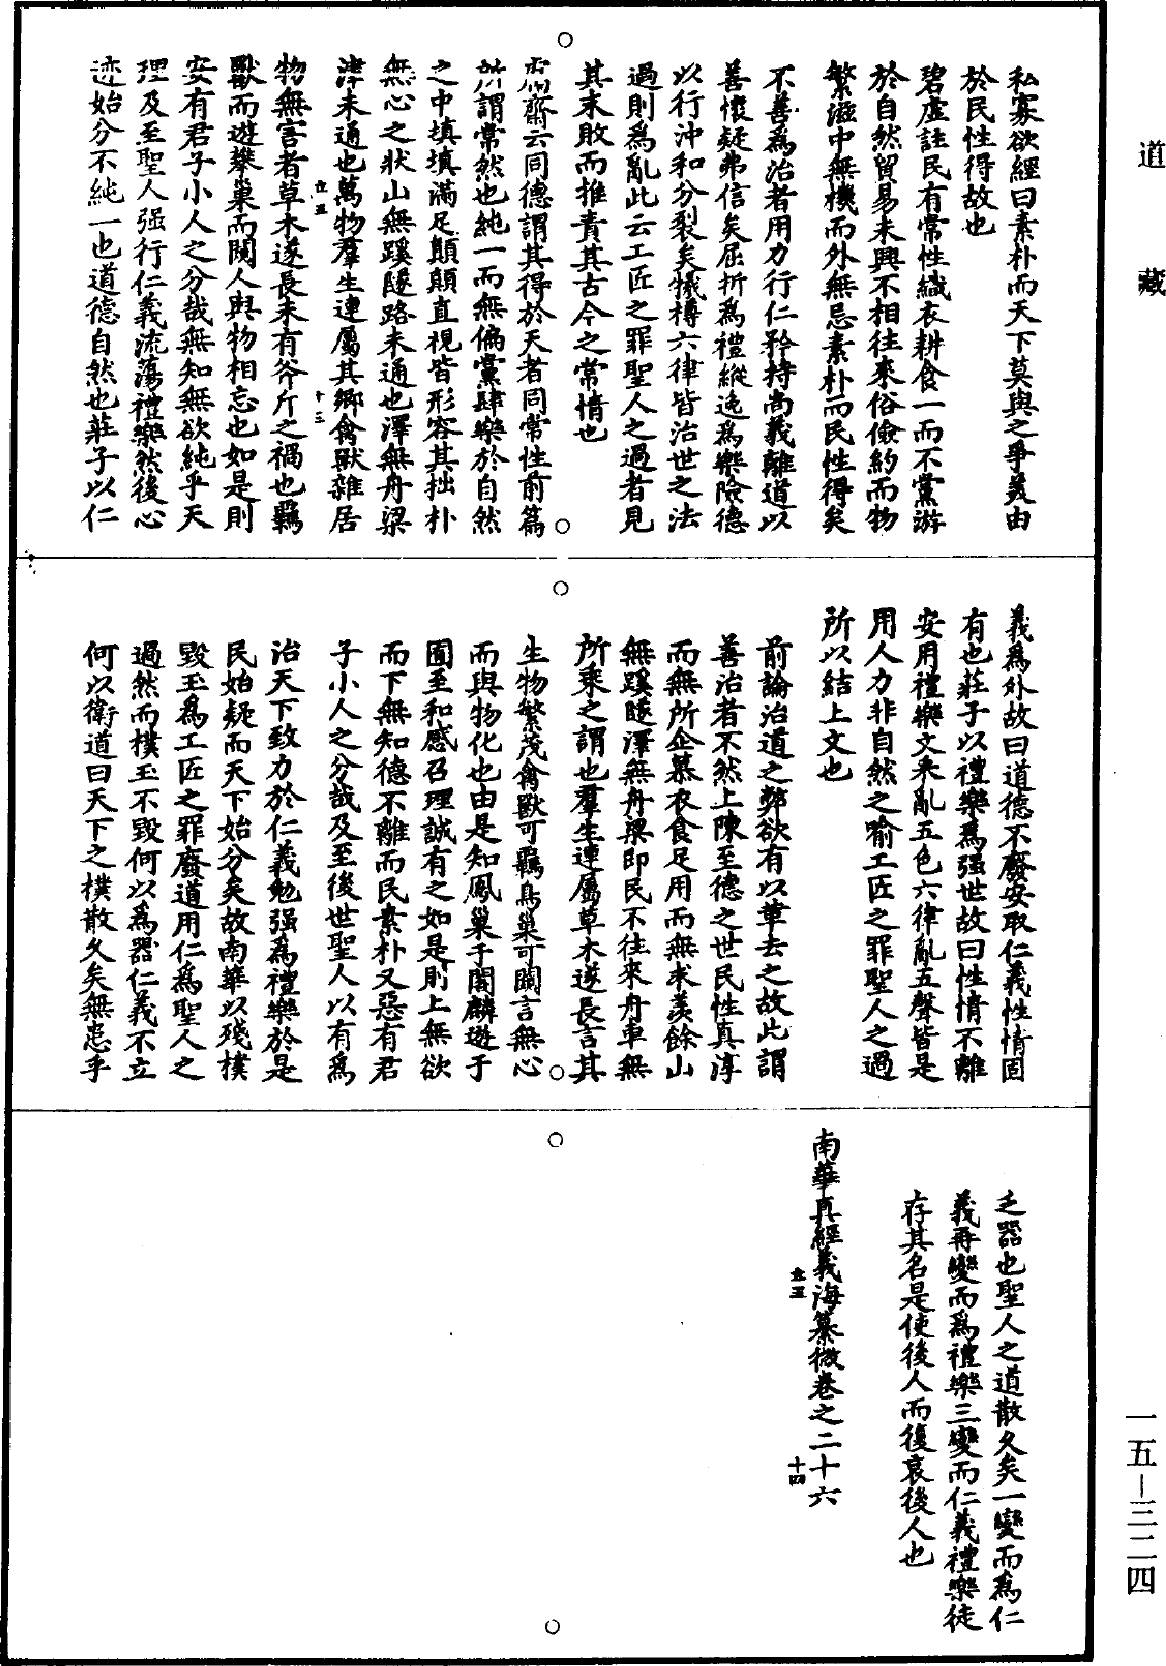 道藏
私寡欲經曰素朴而天下莫與之爭美由
於民性得故也
碧虛註民有常性織衣耕食一而不黨游
於自然貿易未興不相往來俗儉約而物
繁滋中無機而外無忌素朴而民性得矣
不善爲治者用力行仁矜持尚義離道以
善懷疑弗信矣屈折爲禮縱逸爲樂險德
以行沖和分裂矣犧樽六律皆治世之法
過則爲亂此云工匠之罪聖人之過者見
其末敗而推責其古今之常情也
鬳齋云同德謂其得於天者同常性前篇
所謂常然也純一而無偏黨肆樂於自然
之中填填滿足顛顛直視皆形容其拙朴
無心之狀山無蹊隧路未通也澤無舟梁
津未通也萬物羣生連屬其鄉禽獸雜居
立五
十三
物無害者草木遂長未有斧斤之禍也羈
獸而遊攀巢而闚人與物相忘也如是則
安有君子小人之分哉無知無欲純乎天
理及至聖人强行仁義流蕩禮樂然後心
迹始分不純一也道德自然也莊子以仁
義爲外故曰道德不廢安取仁義性情固
有也莊子以禮樂爲强世故曰性情不離
安用禮樂文采亂五色六律亂五聲皆是
用人力非自然之喻工匠之罪聖人之過
所以結上文也
前論治道之弊欲有以革去之故此謂
善治者不然上陳至德之世民性真淳
而無所企慕衣食足用而無求羡餘山
無蹊隧澤無舟梁即民不往來舟車無
所乘之謂也羣生連屬草木遂長言其
生物繁茂禽獸可羈鳥巢可闚言無心
而與物化也由是知鳳巢于閣麟遊于
囿至和感召理誠有之如是則上無欲
而下無知德不離而民素朴又惡有君
子小人之分哉及至後世聖人以有爲
治天下致力於仁義勉强爲禮樂於是
民始疑而天下始分矣故南華以殘樸
毀玉爲工匠之罪廢道用仁爲聖人之
過然而樸玉不毀何以爲器仁義不立
何以衛道曰天下之樸散久矣無患乎
乏器也聖人之道散久矣一變而爲仁
義再變而爲禮樂三變而仁義禮樂徒
存其名是使後人而復哀後人也
南華真經義海纂微卷之二十六
立五
十四
一五—三二四